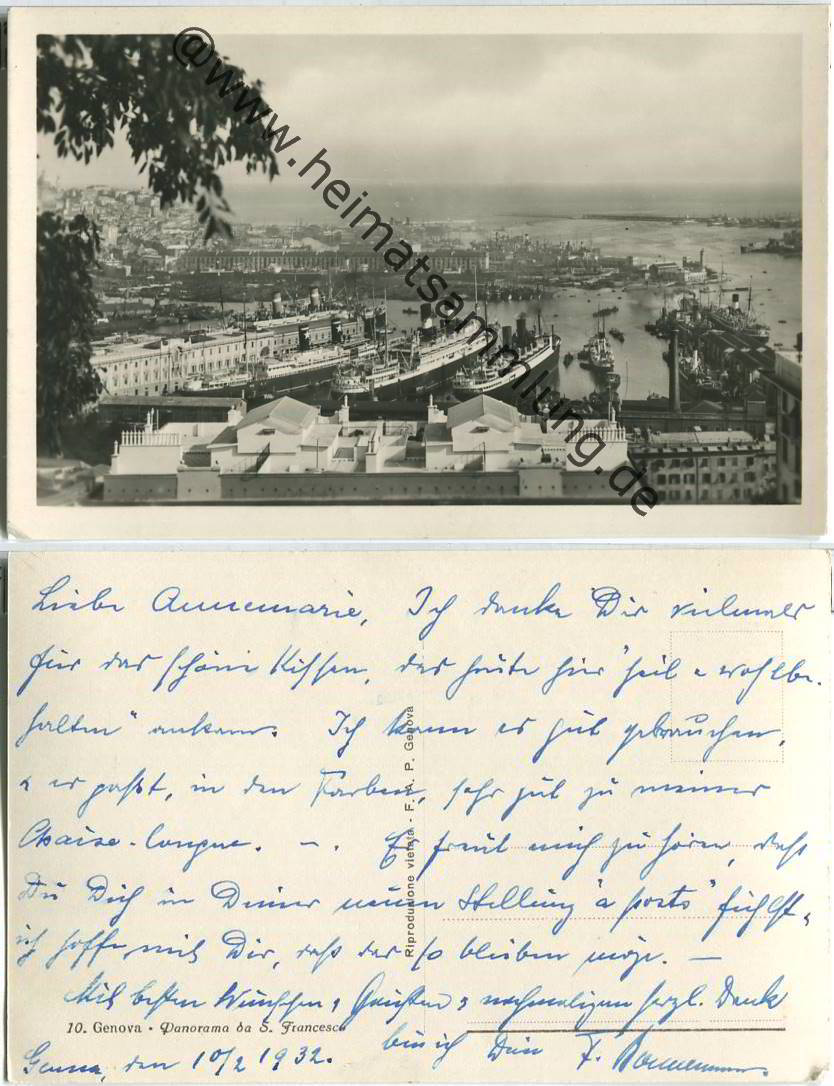 @www.heimatsammlung.de
Liebe Annemarie, Ich danke Dir vielmals
für das schöne Kissen, das heute hier "heil & wohlbe-
halten" ankam. Ich kann es gut gebrauchen,
& es paßt, in den Farben, sehr gut zu meiner
Chaise-longue. –. Es freut mich zu hören, daß
Du Dich in Deiner neuen Stellung "a posto" fühlst &
ich hoffe mit Dir, daß das so bleiben möge. –
Mit besten Wünschen & Grüssen & nochmaligem herzl. Dank
10. Genova - Panorama da S. Francesco
bin ich Dein F.
Genua, den 10/2 1932.
Riproduzione vietata - F. A. P. Genova